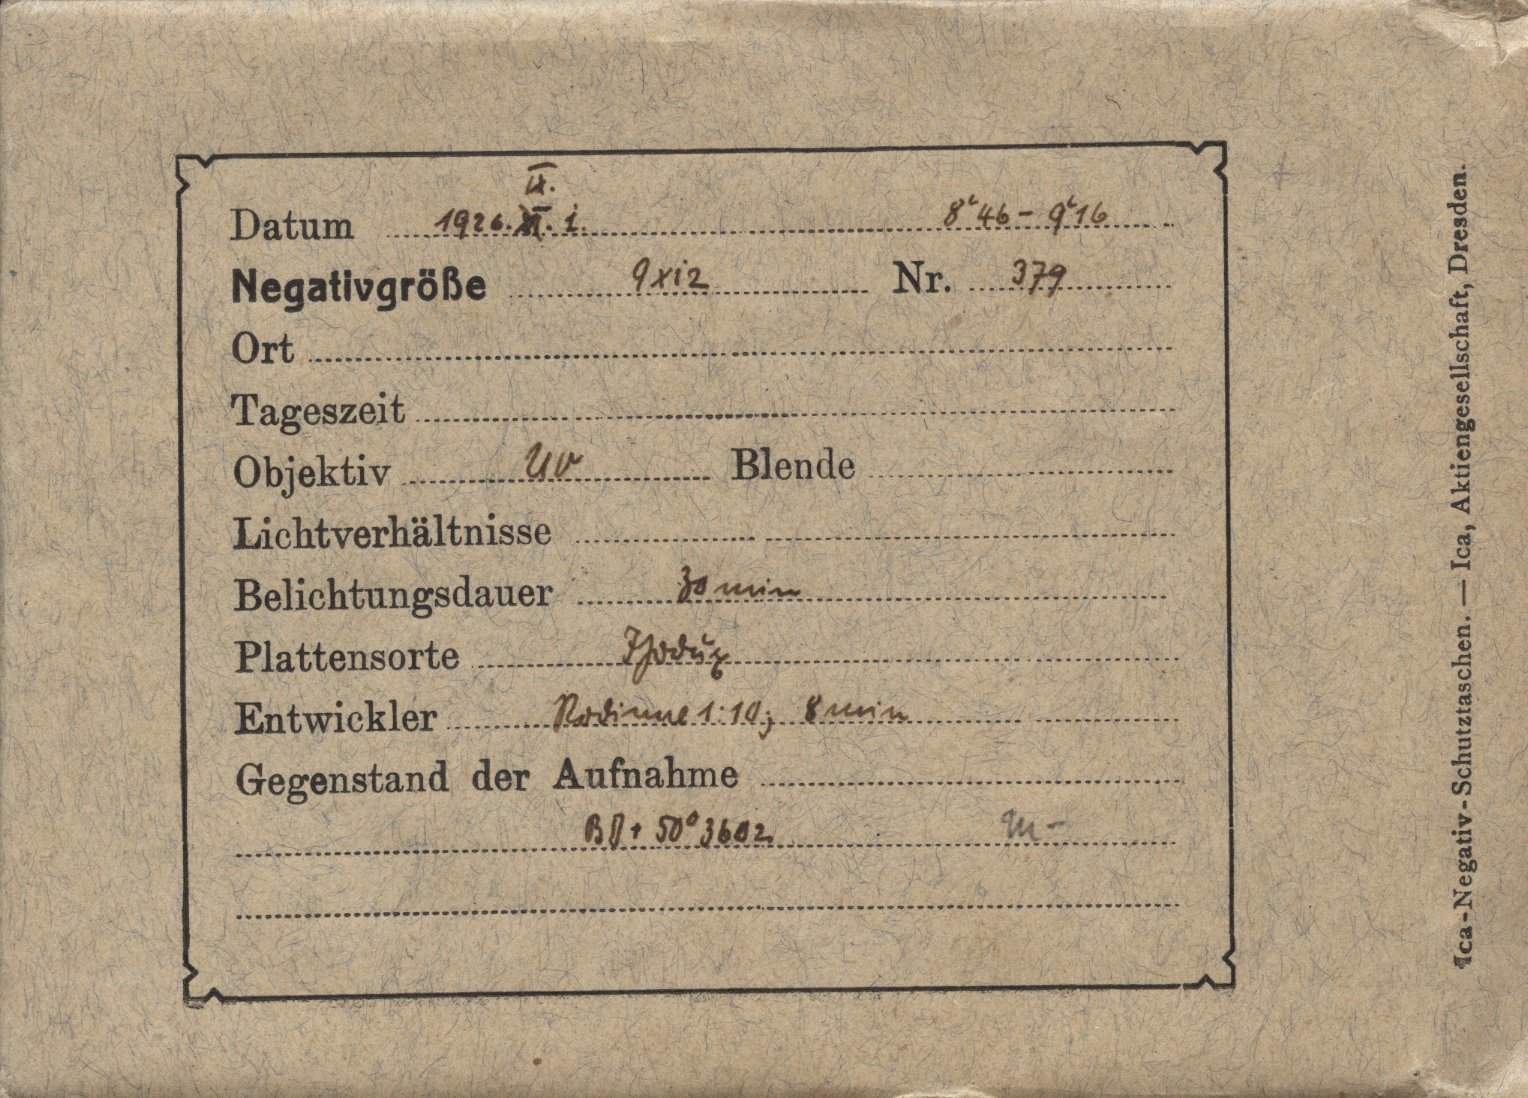 IX.
Datum 1926. . 1. 8ʰ46 - 9ʰ16
Negativgröße 9x12 Nr. 379
Ort
Tageszeit
Objektiv UV Blende
Lichtverhältnisse
Belichtungsdauer 30 min
Plattensorte
Entwickler 1:10; 8 min
Gegenstand der Aufnahme
BD + 50° 3602
Ica-Negativ-Schutztaschen. — Ica, Aktiengesellschaft, Dresden.